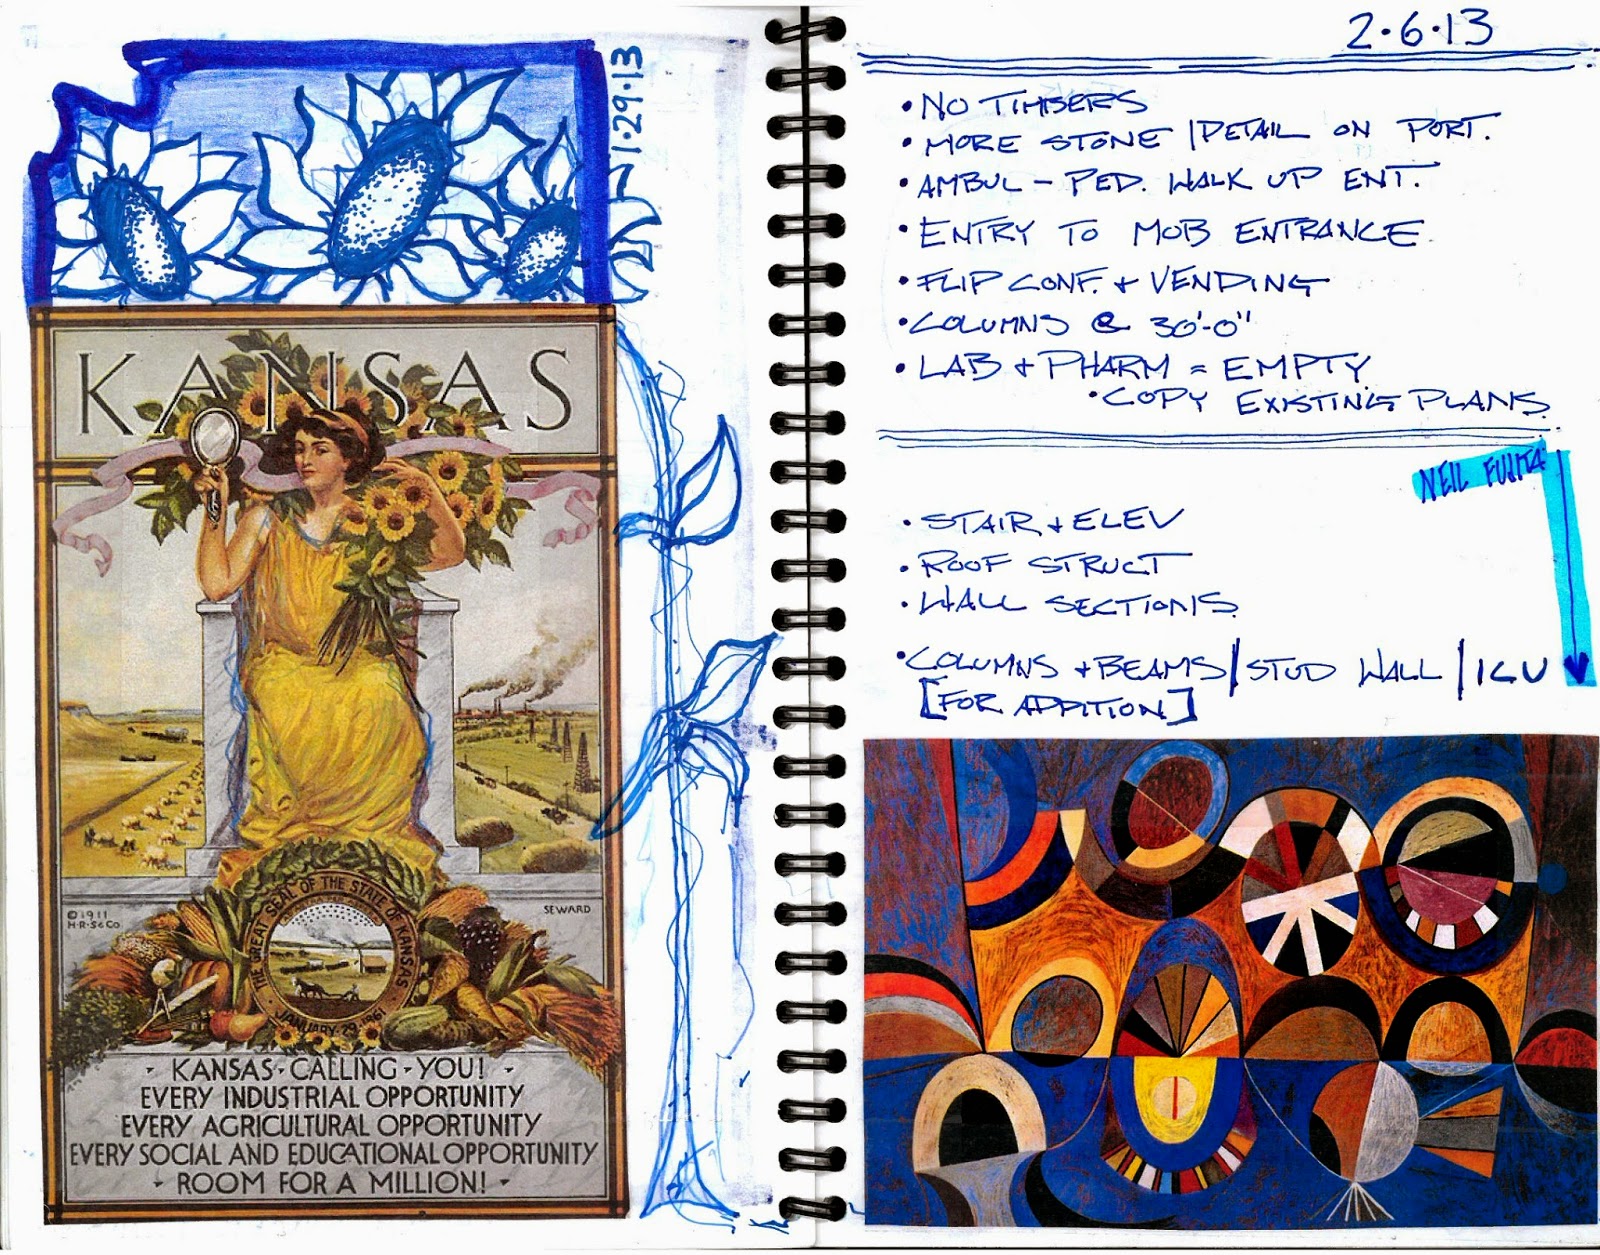 1·29·13
KANSAS
©1911
H·R·S&Co
SEWARD
THE GREAT SEAL OF THE STATE OF KANSAS
JANUARY 29, 1861
· KANSAS · CALLING · YOU! ·
EVERY INDUSTRIAL OPPORTUNITY
EVERY AGRICULTURAL OPPORTUNITY
EVERY SOCIAL AND EDUCATIONAL OPPORTUNITY
· ROOM FOR A MILLION! ·
2·6·13
• NO TIMBERS
• MORE STONE / DETAIL ON PORT.
• AMBUL - PED. WALK UP ENT.
• ENTRY TO MOB ENTRANCE
• FLIP CONF. + VENDING
• COLUMNS @ 30'-0"
• LAB + PHARM = EMPTY
• COPY EXISTING PLANS.
NEIL FUJITA
• STAIR + ELEV
• ROOF STRUCT
• WALL SECTIONS
• COLUMNS + BEAMS / STUD WALL / ICU
[FOR ADDITION]